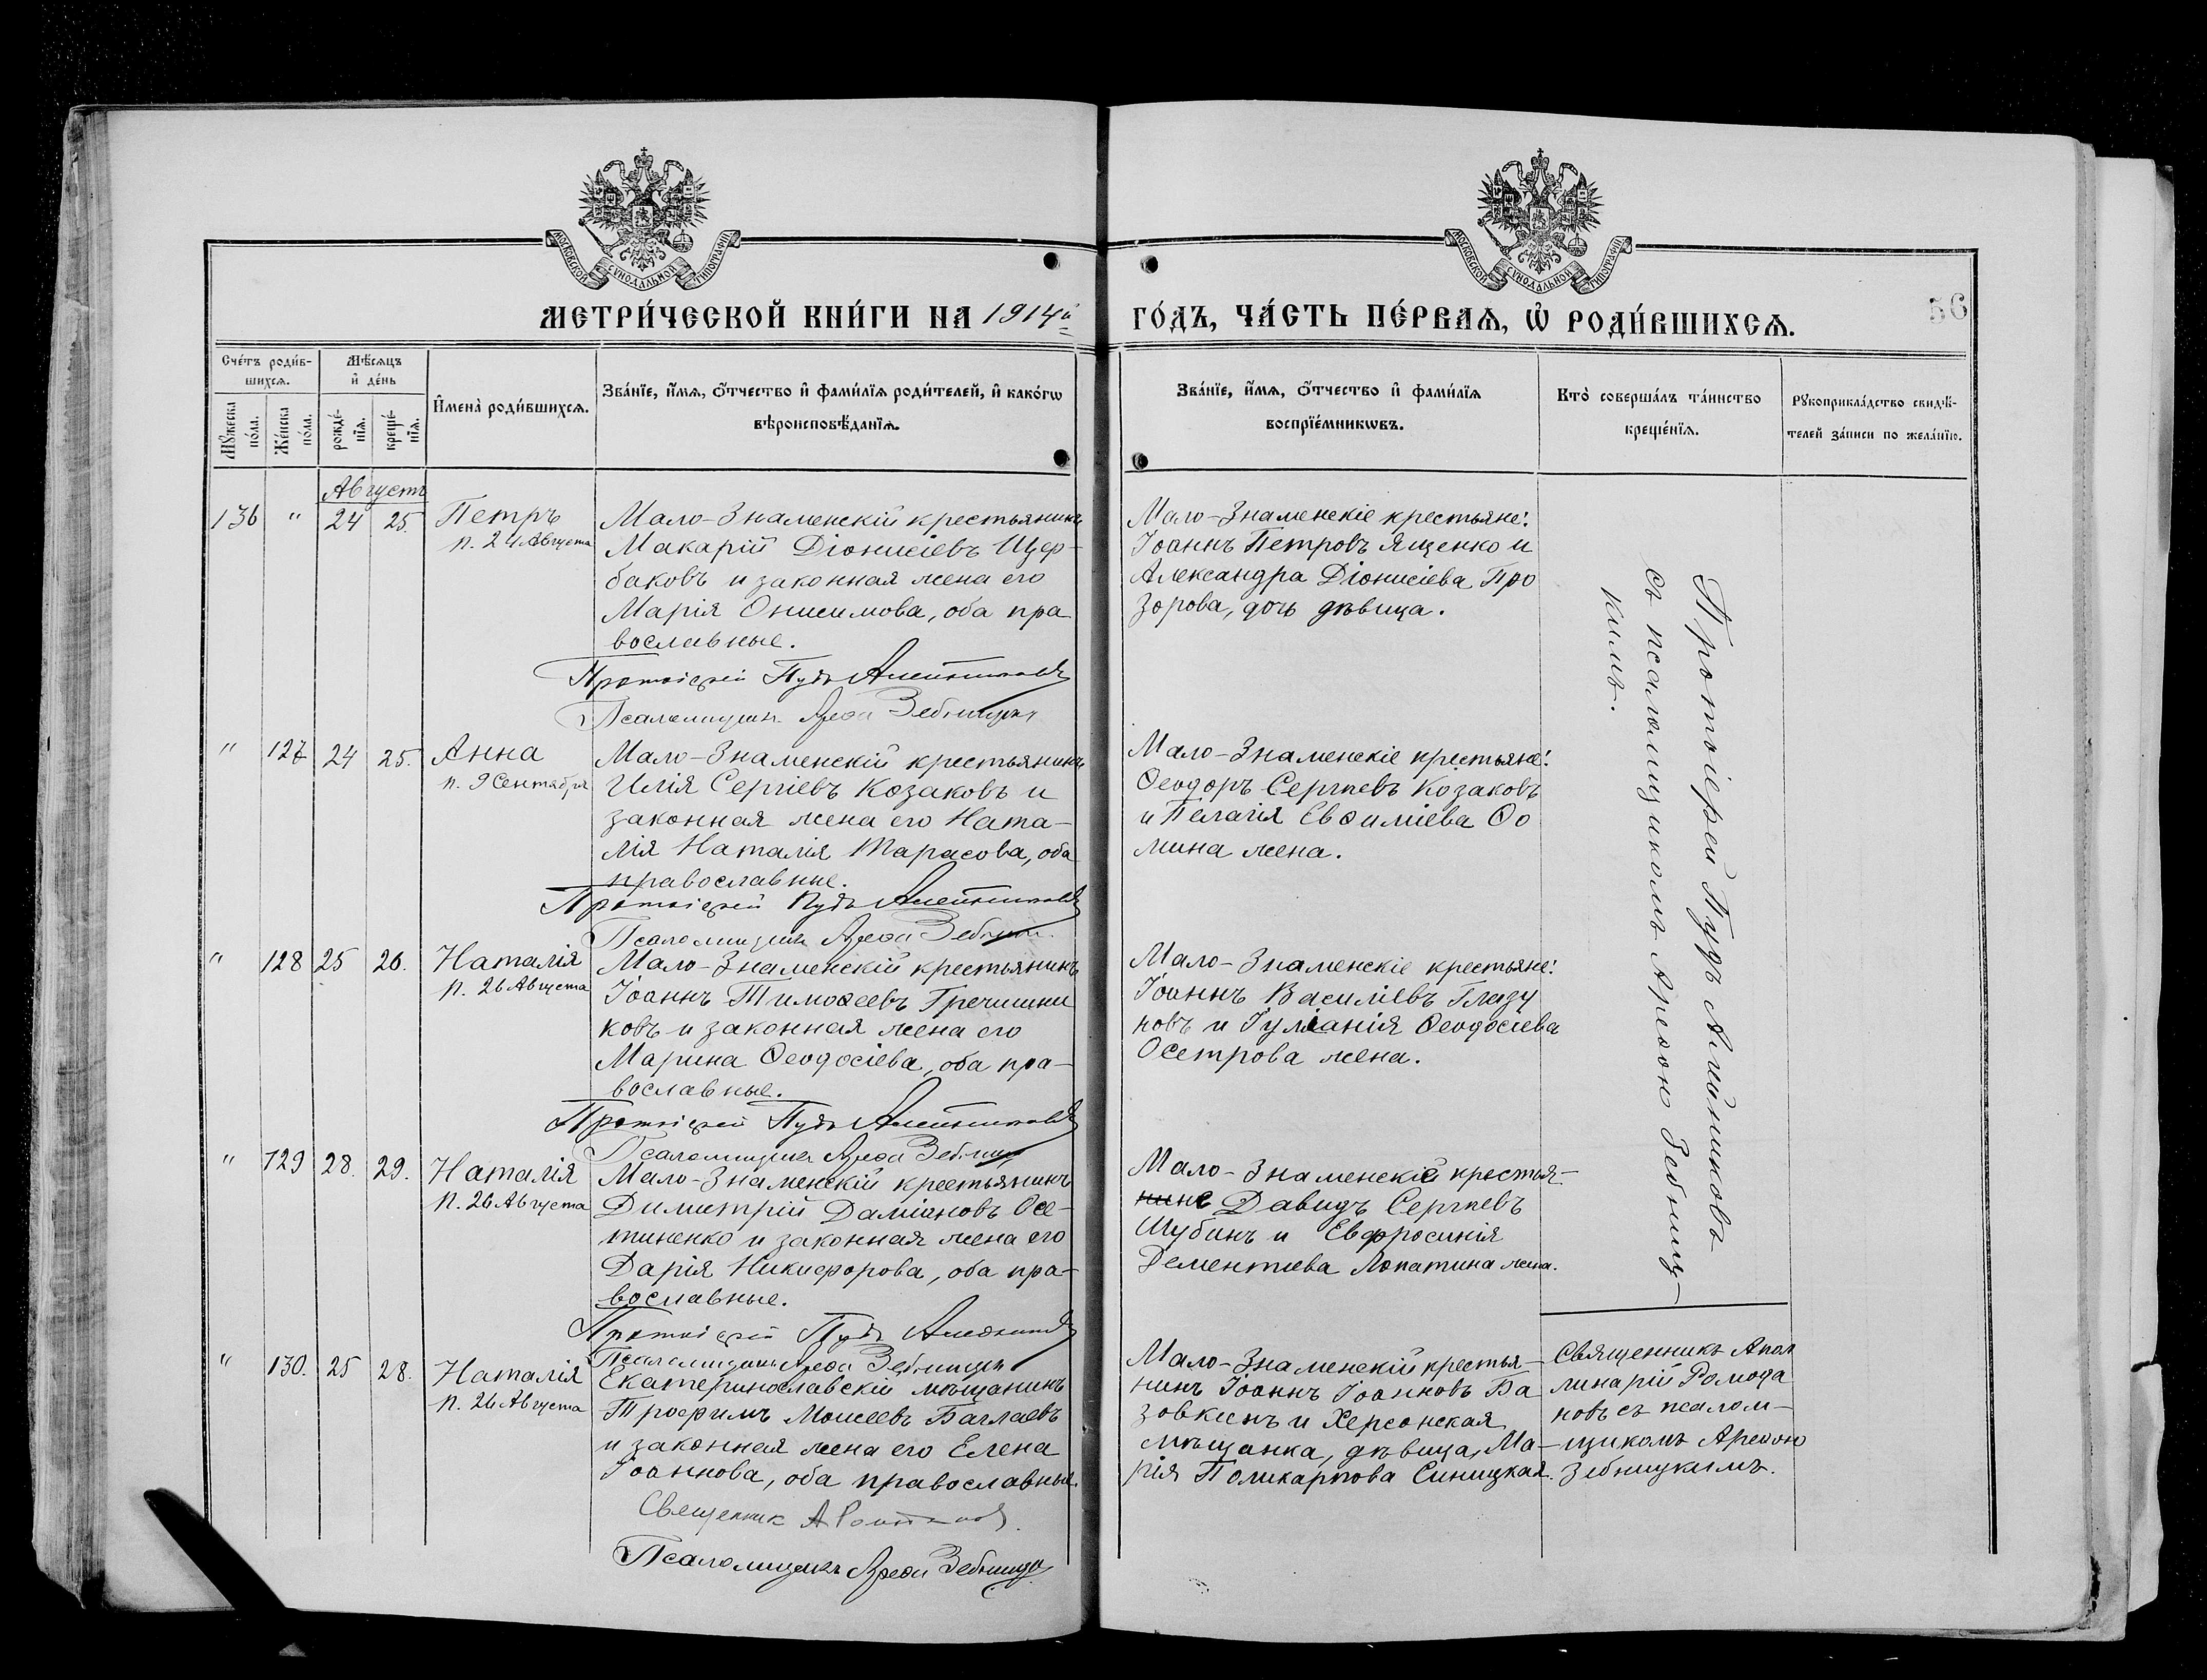 МОСКОВСКОЙ СУНОДАЛЬНОЙ ТИПОГРАФІИ
МОСКОВСКОЙ СУНОДАЛЬНОЙ ТИПОГРАФІИ
МЕТРИ́ЧЕСКОЙ КНИ́ГИ НА 1914й ГО́ДЪ, ЧА́СТЬ ПЕ́РВАѦ, Ѡ҆ РОДИ́ВШИХСѦ.
56
Сче́тъ роди́в-
шихсѧ.
Мѣ́сѧцъ
и҆ де́нь
Мꙋ́жеска
по́ла.
Же́нска
по́ла.
рожде́-
нїѧ.
креще́-
нїѧ.
И҆мена̀ роди́вшихсѧ.
Зва́нїе, и҆́мѧ, ѻ҆́тчество и҆ фами́лїѧ роди́телей, и҆ како́гѡ
вѣроисповѣ́данїѧ.
Зва́нїе, и҆́мѧ, ѻ҆́тчество и҆ фами́лїѧ
воспрїе́мникѡвъ.
Кто̀ соверша́лъ та́инство
креще́нїѧ.
Рꙋкоприкла́дство свидѣ́-
телей за́писи по жела́нїю.
Августъ
136 " 24 25. Петръ
п. 24 Августа
Мало-Знаменскій крестьянинъ
Макарій Діонисіевъ Щер-
баковъ и законная жена его
Марія Онисимова, оба пра
вославные.
Протоіерей Пудъ Алейниковъ
Псаломщикъ Ареѳа Зебницкій
Мало-Знаменскіе крестьяне:
Іоаннъ Петровъ Ященко и
Александра Діонисіева Про
зорова, дочь дѣвица.
" 127 24 25. Анна
п. 9 Сентября
Мало-Знаменскій крестьянинъ
Илія Сергіевъ Козаковъ и
законная жена его Ната-
лія Наталія Тарасова, оба
православные.
Протоіерей Пудъ Алейниковъ
Псаломщикъ Ареѳа Зебницкій
Мало-Знаменскіе крестьяне:
Ѳеодоръ Сергіевъ Козаковъ
и Пелагія Евѳиміева Ѳо
мина жена.
" 128 25 26. Наталія
п. 26 Августа
Мало-Знаменскій крестьянинъ
Іоаннъ Тимоѳеевъ Гречишни
ковъ и законная жена его
Марина Ѳеодосіева, оба пра-
вославные.
Протоіерей Пудъ Алейниковъ
Псаломщикъ Ареѳа Зебницкій
Мало-Знаменскіе крестьяне:
Іоаннъ Василіевъ Глазу
новъ и Іуліанія Ѳеодосіева
Осетрова жена.
" 129 28. 29. Наталія
п. 26 Августа
Мало-Знаменскій крестьянинъ
Димитрій Даміановъ Осе-
тиненко и законная жена его
Дарія Никифорова, оба пра-
вославные.
Протоіерей Пудъ Алейниковъ
Псаломщикъ Ареѳа Зебницкій
Мало-Знаменскіе крестья-
не Давидъ Сергіевъ
Шубинъ и Евфросинія
Дементіева Лопатина жена.
Протоіерей Пудъ Алейниковъ
съ псаломщикомъ Ареѳою Зебниц-
кимъ.
" 130. 25 28. Наталія
п. 26 Августа
Екатеринославскій мѣщанинъ
Трофимъ Моисеевъ Баглаевъ
и законная жена его Елена
Іоаннова, оба православные.
Священник А Ромодановъ
Псаломщикъ Ареѳа Зебницкій
Мало-Знаменскій крестья-
нинъ Іоаннъ Іоанновъ Ба
зовкинъ и Херсонская
мѣщанка, дѣвица, Ма-
рія Поликарпова Синицкая.
Священникъ Апол
линарій Ромода
новъ съ псалом-
щикомъ Ареѳою
Зебницкимъ.